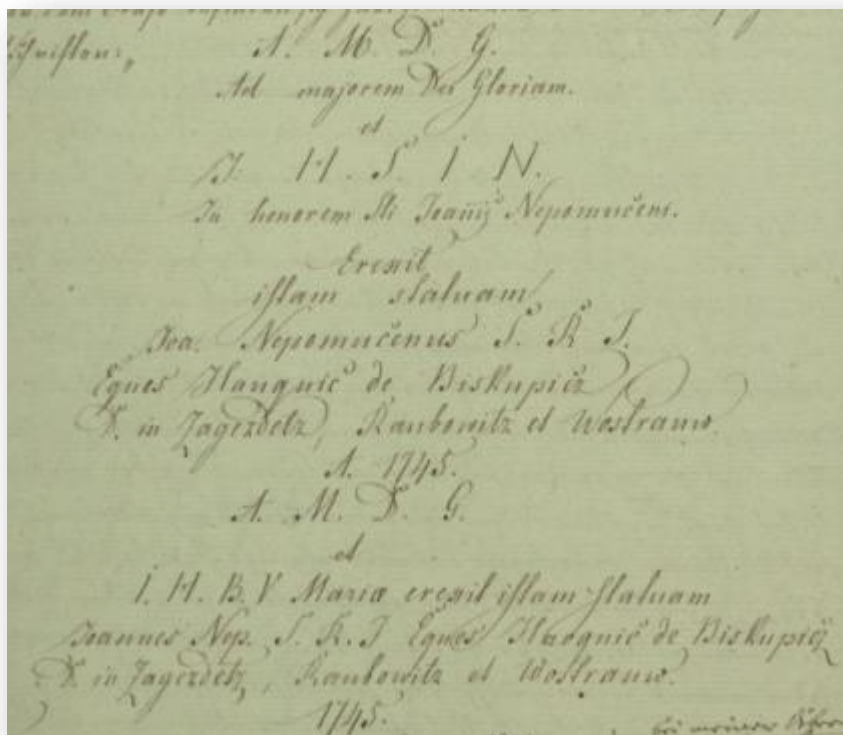 schriften:,,
A. M. D. G.
Ad majorem Dei Gloriam.
et
J. H. S. I N.
In honorem Sti Joanīs Nepomučeni.
Erexit
istam statuam
Joa. Nepomučenus S. R. I.
Eques Haugvic de Biskupicz
D. in Zagezdetz, Raubowitz et Wostrauw.
A. 1745.
A. M. D. G.
et
I. H. B. V Mariæ erexit istam statuam
Joannes Nep. S. R. I Eques Haugvic de Biskupicz
D. in Zagezdetz, Raubowitz et Wostrauw.
1745.
bei meiner